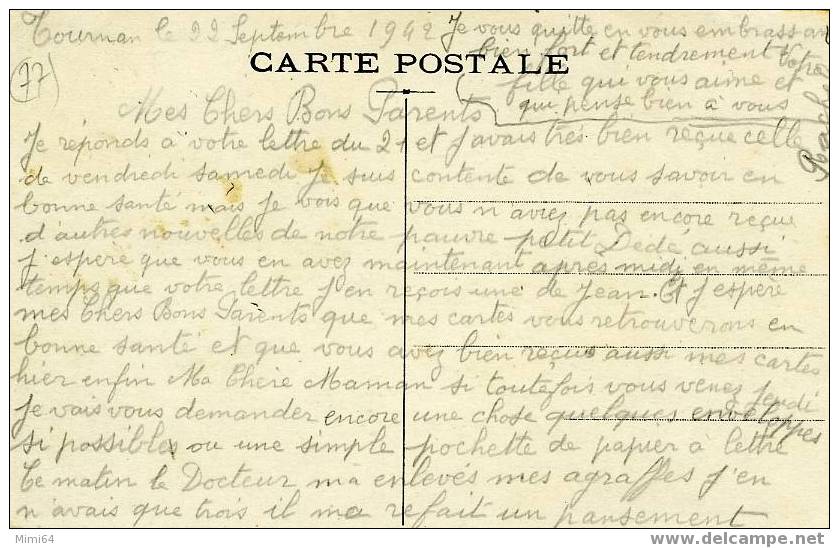 Tournan le 22 Septembre 1942
CARTE POSTALE
77
Mes Chers Bons Parents
Je réponds à votre lettre du 21 et j'avais très bien reçue celle
de vendredi samedi je suis contente de vous savoir en
bonne santé mais je vois que vous n'aviez pas encore reçue
d'autres nouvelles de notre pauvre petit Dédé aussi
j'espère que vous en avez maintenant après midi en même
temps que votre lettre j'en reçois une de Jean. Et j'espère
mes Chers Bons Parents que mes cartes vous retrouverons en
bonne santé et que vous avez bien reçus aussi mes cartes
hier enfin Ma Chère Maman si toutefois vous venez Jeudi
je vais vous demander encore une chose quelques enveloppes
si possibles ou une simple pochette de papier à lettre
Ce matin le Docteur ma enlevés mes agraffes j'en
n'avais que trois il ma refait un pansement
Je vous quitte en vous embrassant
bien fort et tendrement Votre
fille qui vous aime et
qui pense bien à vous
Mimi64
www.delcampe.net